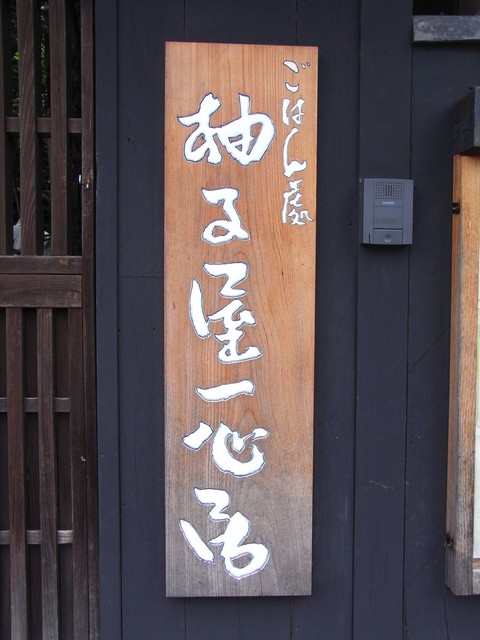 ごはん處
柚子屋一心居